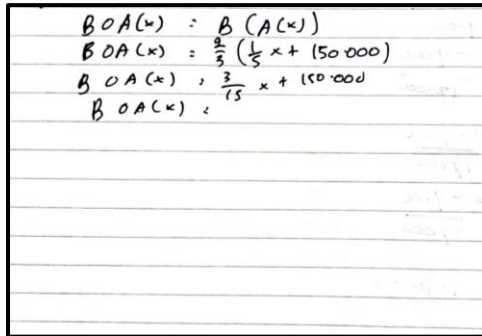 B O A(x) : B (A(x))
B O A(x) : 2/3 (1/5 x + 150.000)
B O A(x) : 3/15 x + 150.000
B O A(x) :